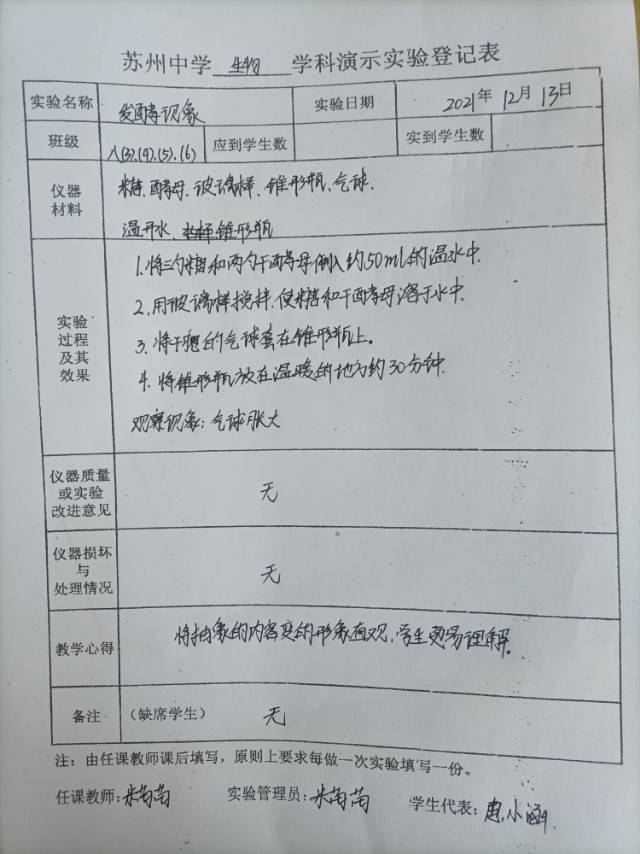 苏州中学 生物 学科演示实验登记表
实验名称 发酵现象 实验日期 2021年12月13日
班级 八(3).(4).(5).(6) 应到学生数 实到学生数
仪器材料 糖.酵母.玻璃棒.锥形瓶.气球.
温开水、锥形瓶
实验过程及其效果
1.将三勺糖和两勺干酵母倒入约50ml的温水中.
2.用玻璃棒搅拌.使糖和干酵母溶于水中.
3.将干瘪的气球套在锥形瓶上。
4.将锥形瓶放在温暖的地方约30分钟.
观察现象:气球胀大
仪器质量或实验改进意见 无
仪器损坏与处理情况 无
教学心得 将抽象的内容变的形象直观,学生更易理解。
备注 (缺席学生) 无
注:由任课教师课后填写,原则上要求每做一次实验填写一份。
任课教师:米苗苗 实验管理员:米苗苗 学生代表:惠小涵